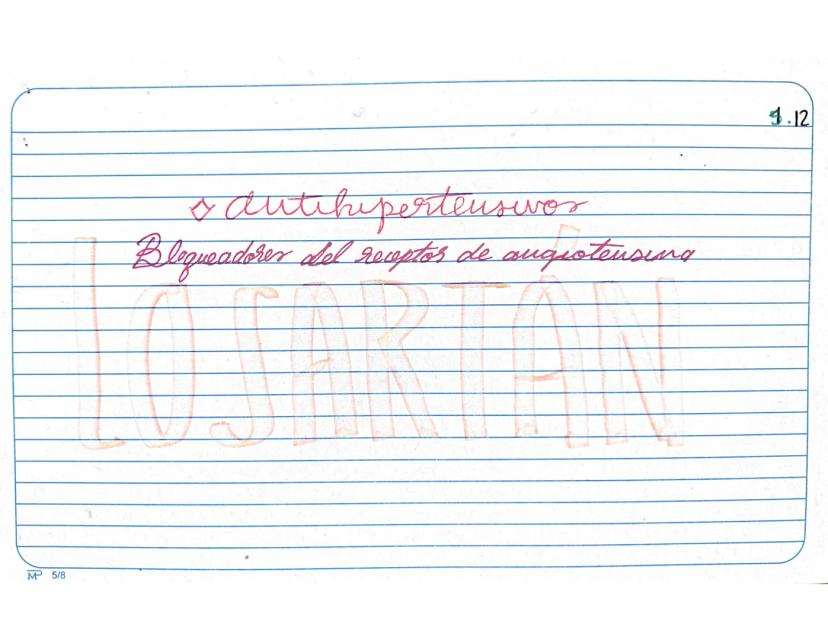 1.12
◇ Antihipertensivos
Bloqueadores del receptor de angiotensina
LOSARTÁN
MP 5/8